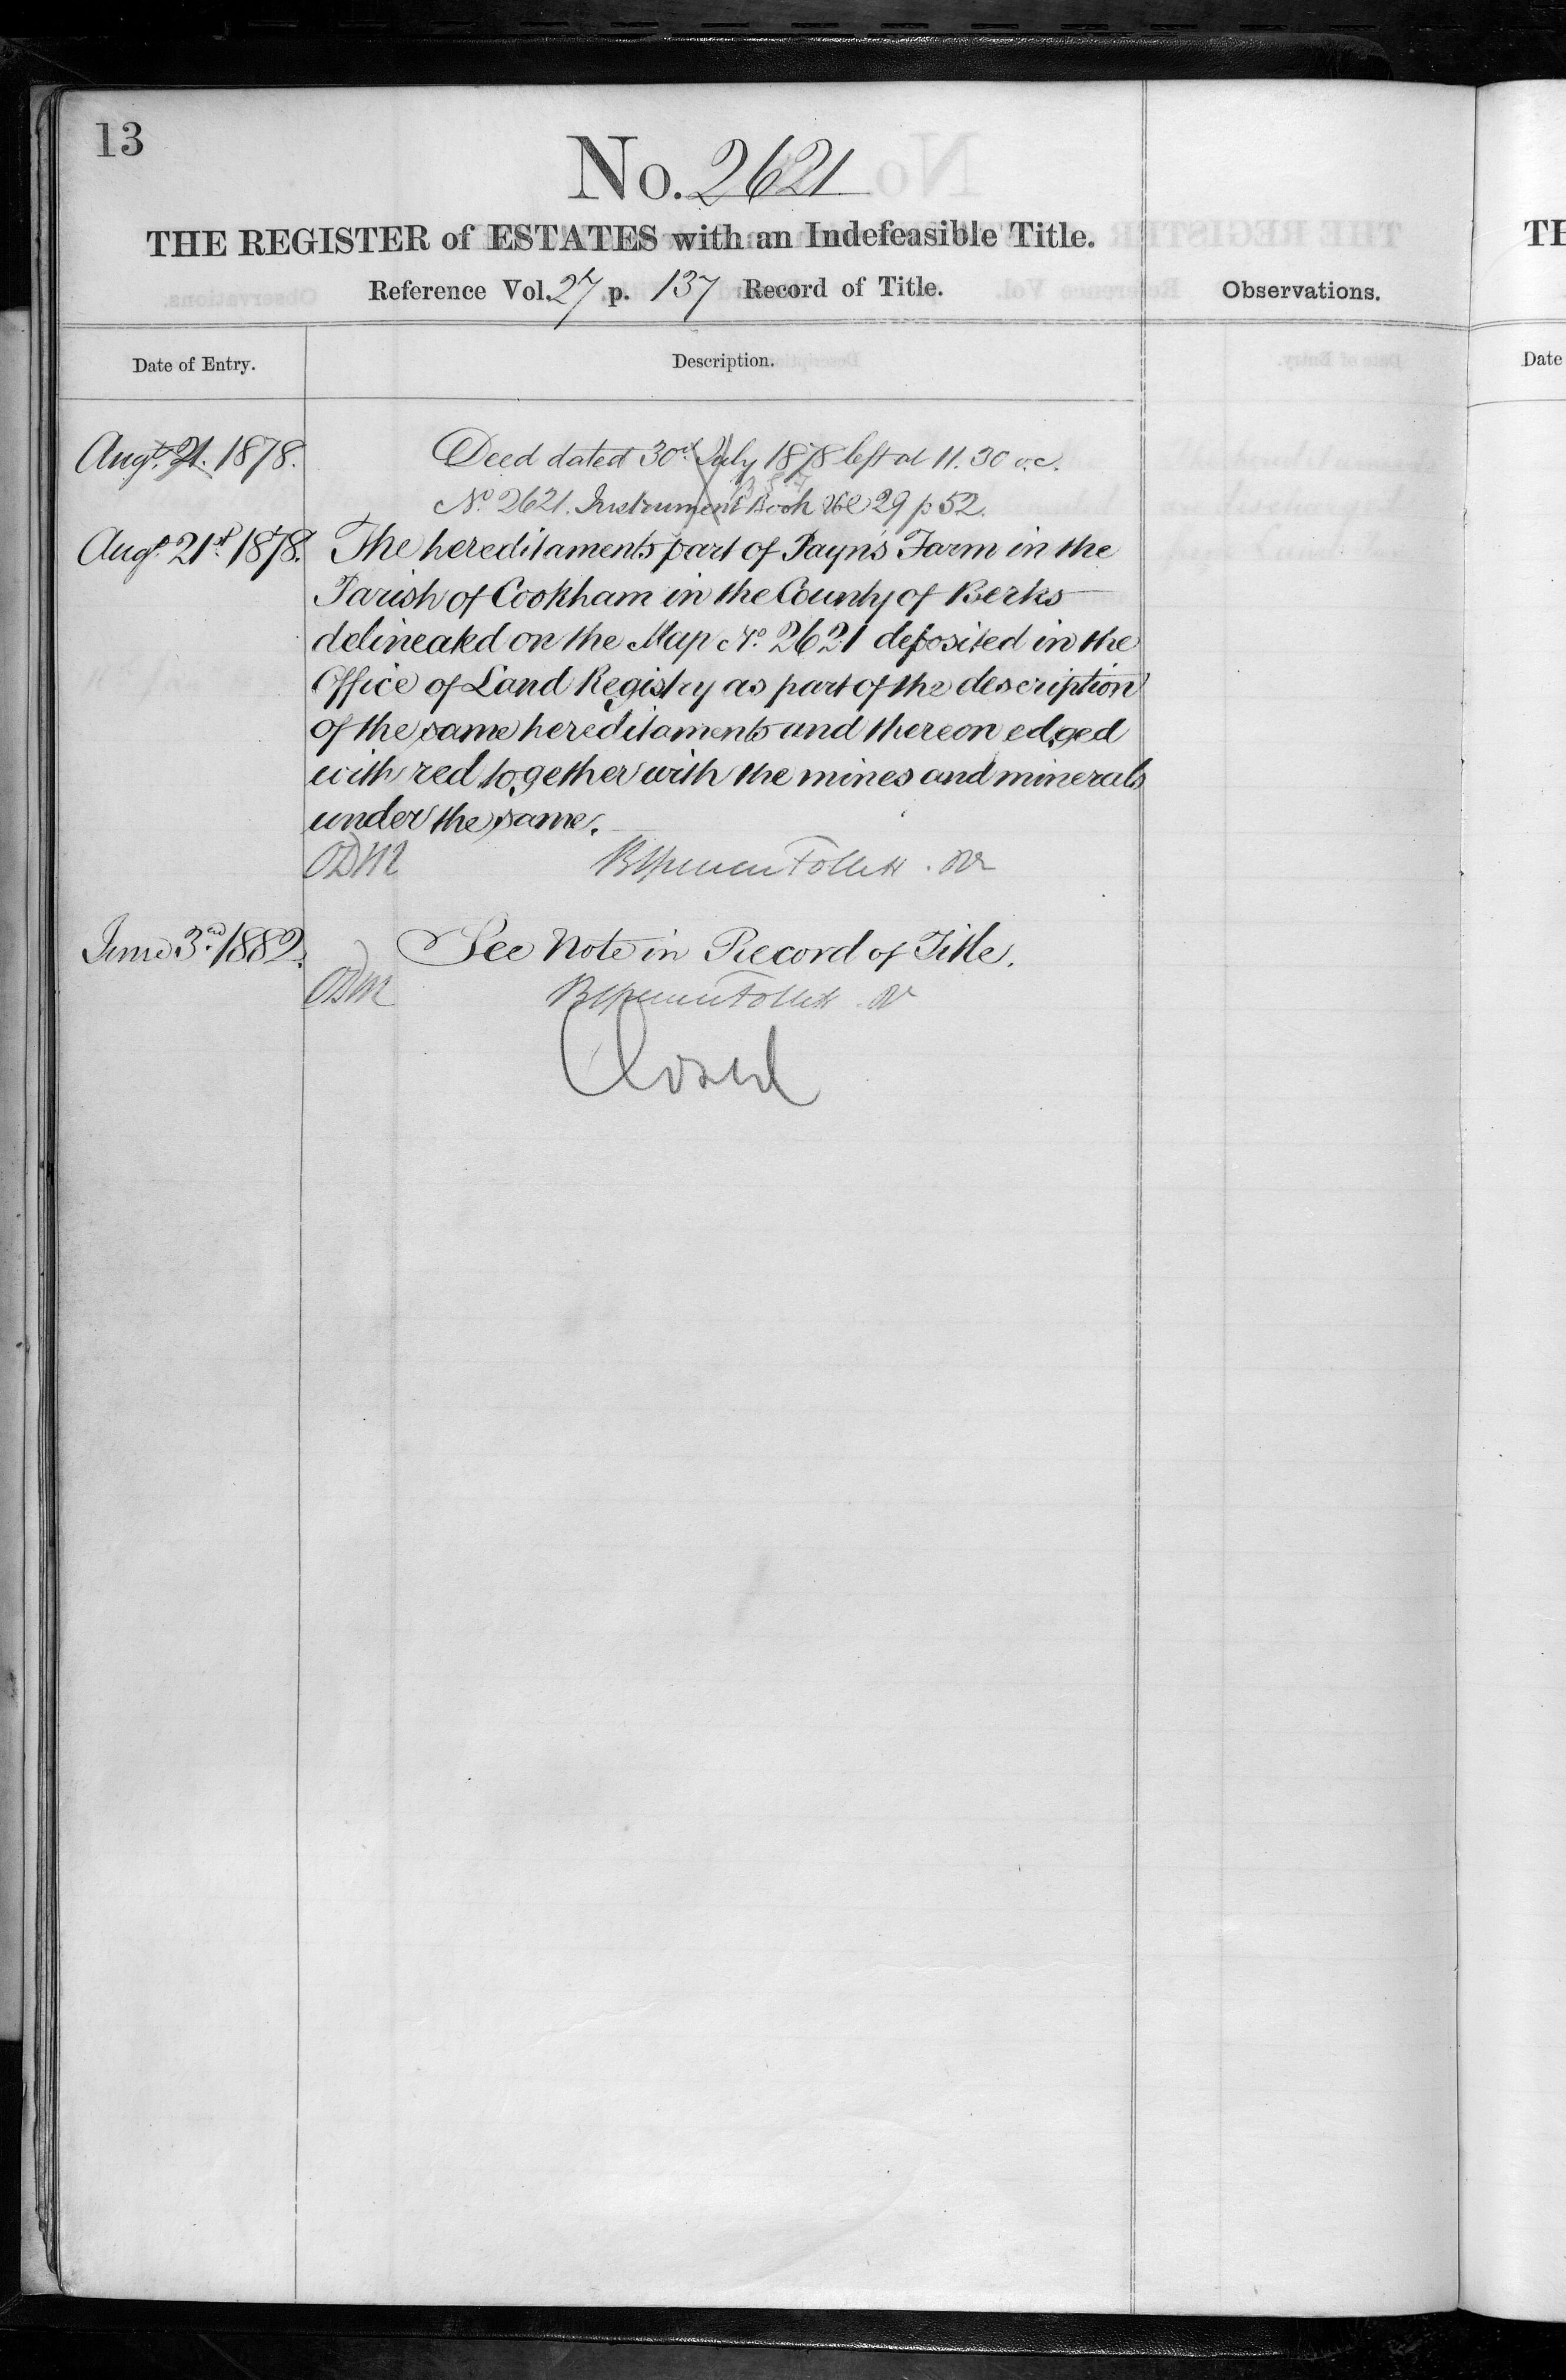 13
No. 2621
THE REGISTER of ESTATES with an Indefeasible Title.
Reference Vol. 27 p. 137 Record of Title.
Observations.
Date of Entry.
Description.
Augt. 21. 1878.
Deed dated 30th July 1878 left at 11.30 o.c.
No. 2621. Instrument Book Vol 29 p 52.
Augt. 21st. 1878.
The hereditaments part of Payn's Farm in the
Parish of Cookham in the County of Berks
delineated on the Map No. 2621 deposited in the
Office of Land Registry as part of the description
of the same hereditaments and thereon edged
with red together with the mines and minerals
under the same.
Follett
June 3rd. 1882.
See Note in Record of Title.
Follett
Closed
TH
Date